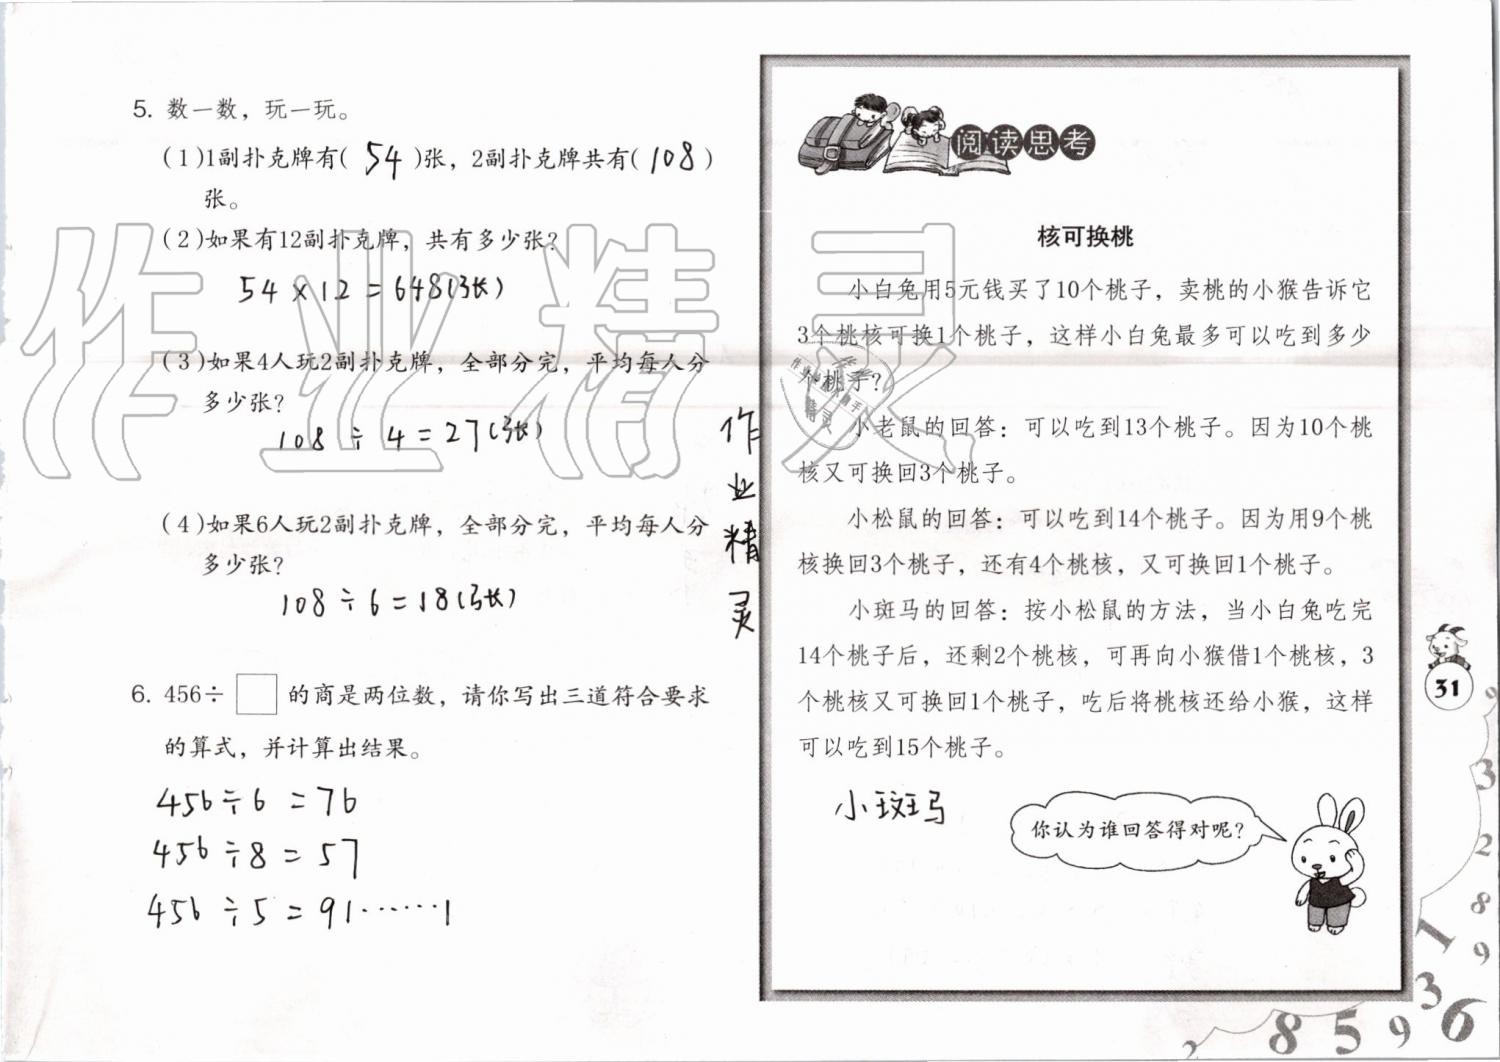 5. 数一数，玩一玩。
(1)1副扑克牌有( 54 )张，2副扑克牌共有( 108 )
张。
(2)如果有12副扑克牌，共有多少张？
54×12=648(张)
(3)如果4人玩2副扑克牌，全部分完，平均每人分
多少张？
108÷4=27(张)
(4)如果6人玩2副扑克牌，全部分完，平均每人分
多少张？
108÷6=18(张)
6. 456÷□的商是两位数，请你写出三道符合要求
的算式，并计算出结果。
456÷6=76
456÷8=57
456÷5=91……1
作业精灵
作业精灵
阅读思考
核可换桃
小白兔用5元钱买了10个桃子，卖桃的小猴告诉它
3个桃核可换1个桃子，这样小白兔最多可以吃到多少
个桃子？
小老鼠的回答：可以吃到13个桃子。因为10个桃
核又可换回3个桃子。
小松鼠的回答：可以吃到14个桃子。因为用9个桃
核换回3个桃子，还有4个桃核，又可换回1个桃子。
小斑马的回答：按小松鼠的方法，当小白兔吃完
14个桃子后，还剩2个桃核，可再向小猴借1个桃核，3
个桃核又可换回1个桃子，吃后将桃核还给小猴，这样
可以吃到15个桃子。
小斑马
你认为谁回答得对呢？
31
9
3
2
8
9
1
3
6
2
8
5
9